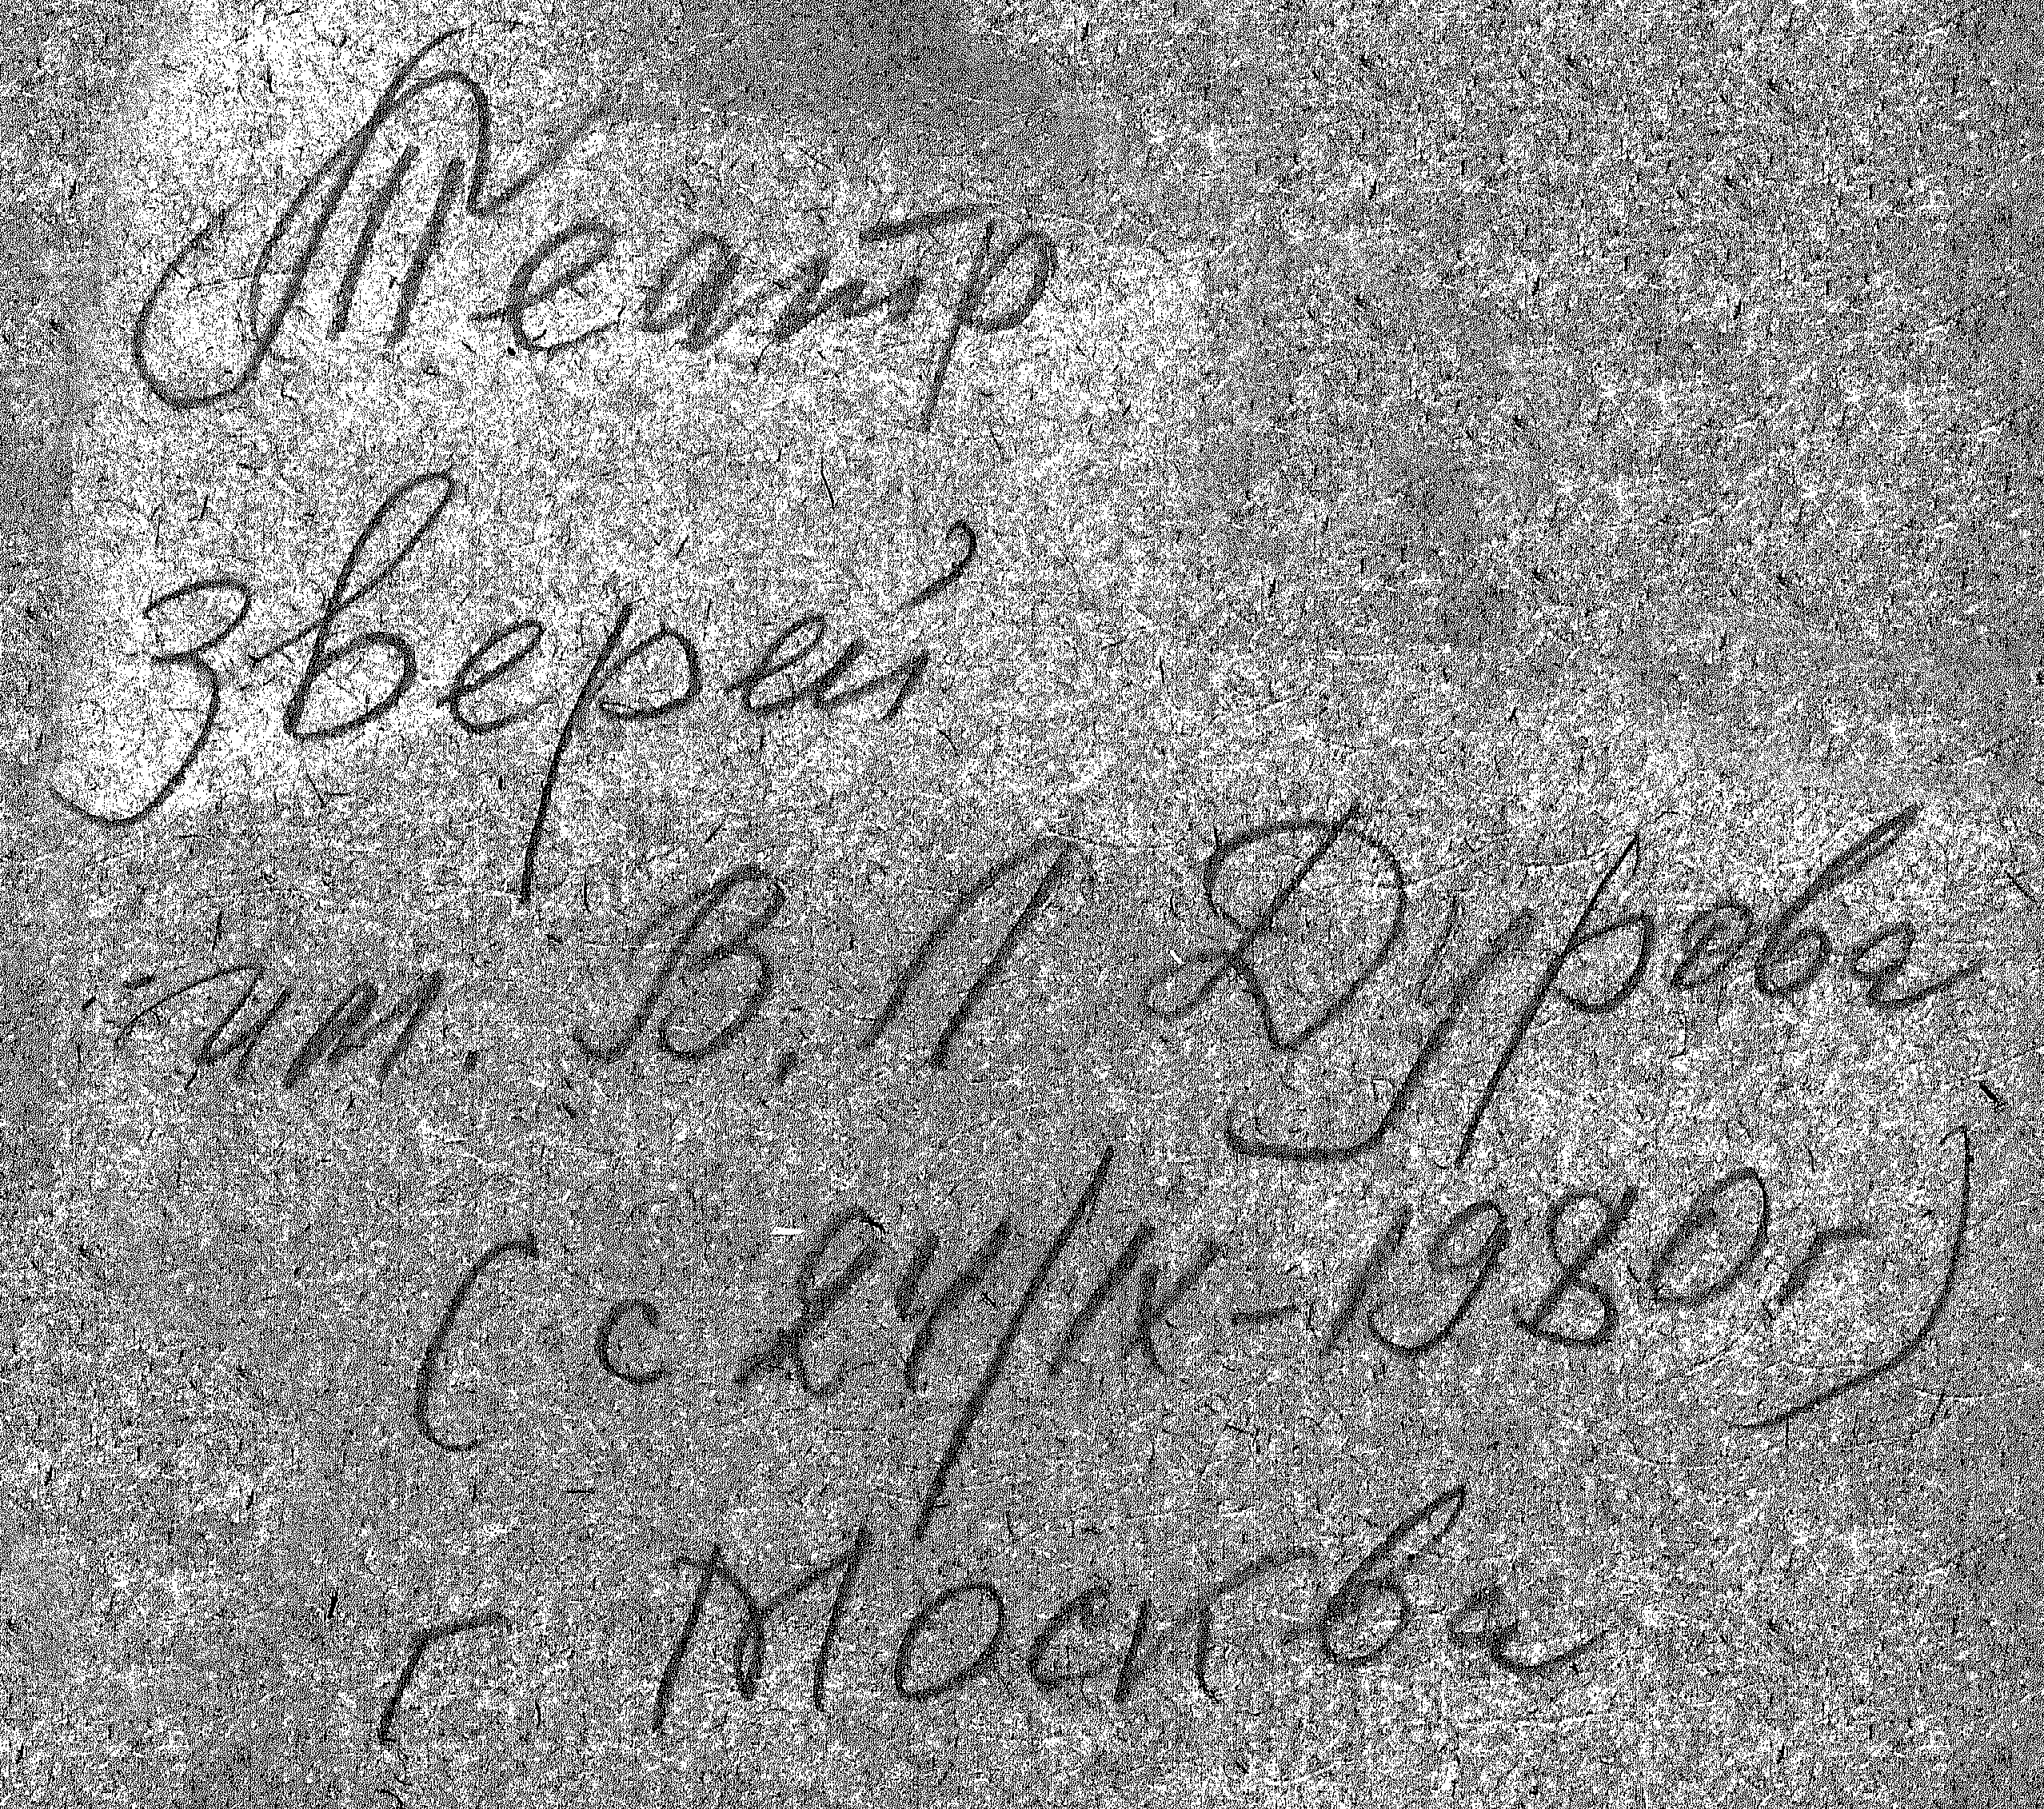 Театр
Зверей
им. В. Л Дурова
(с ец/к - 1980 г)
г Москва